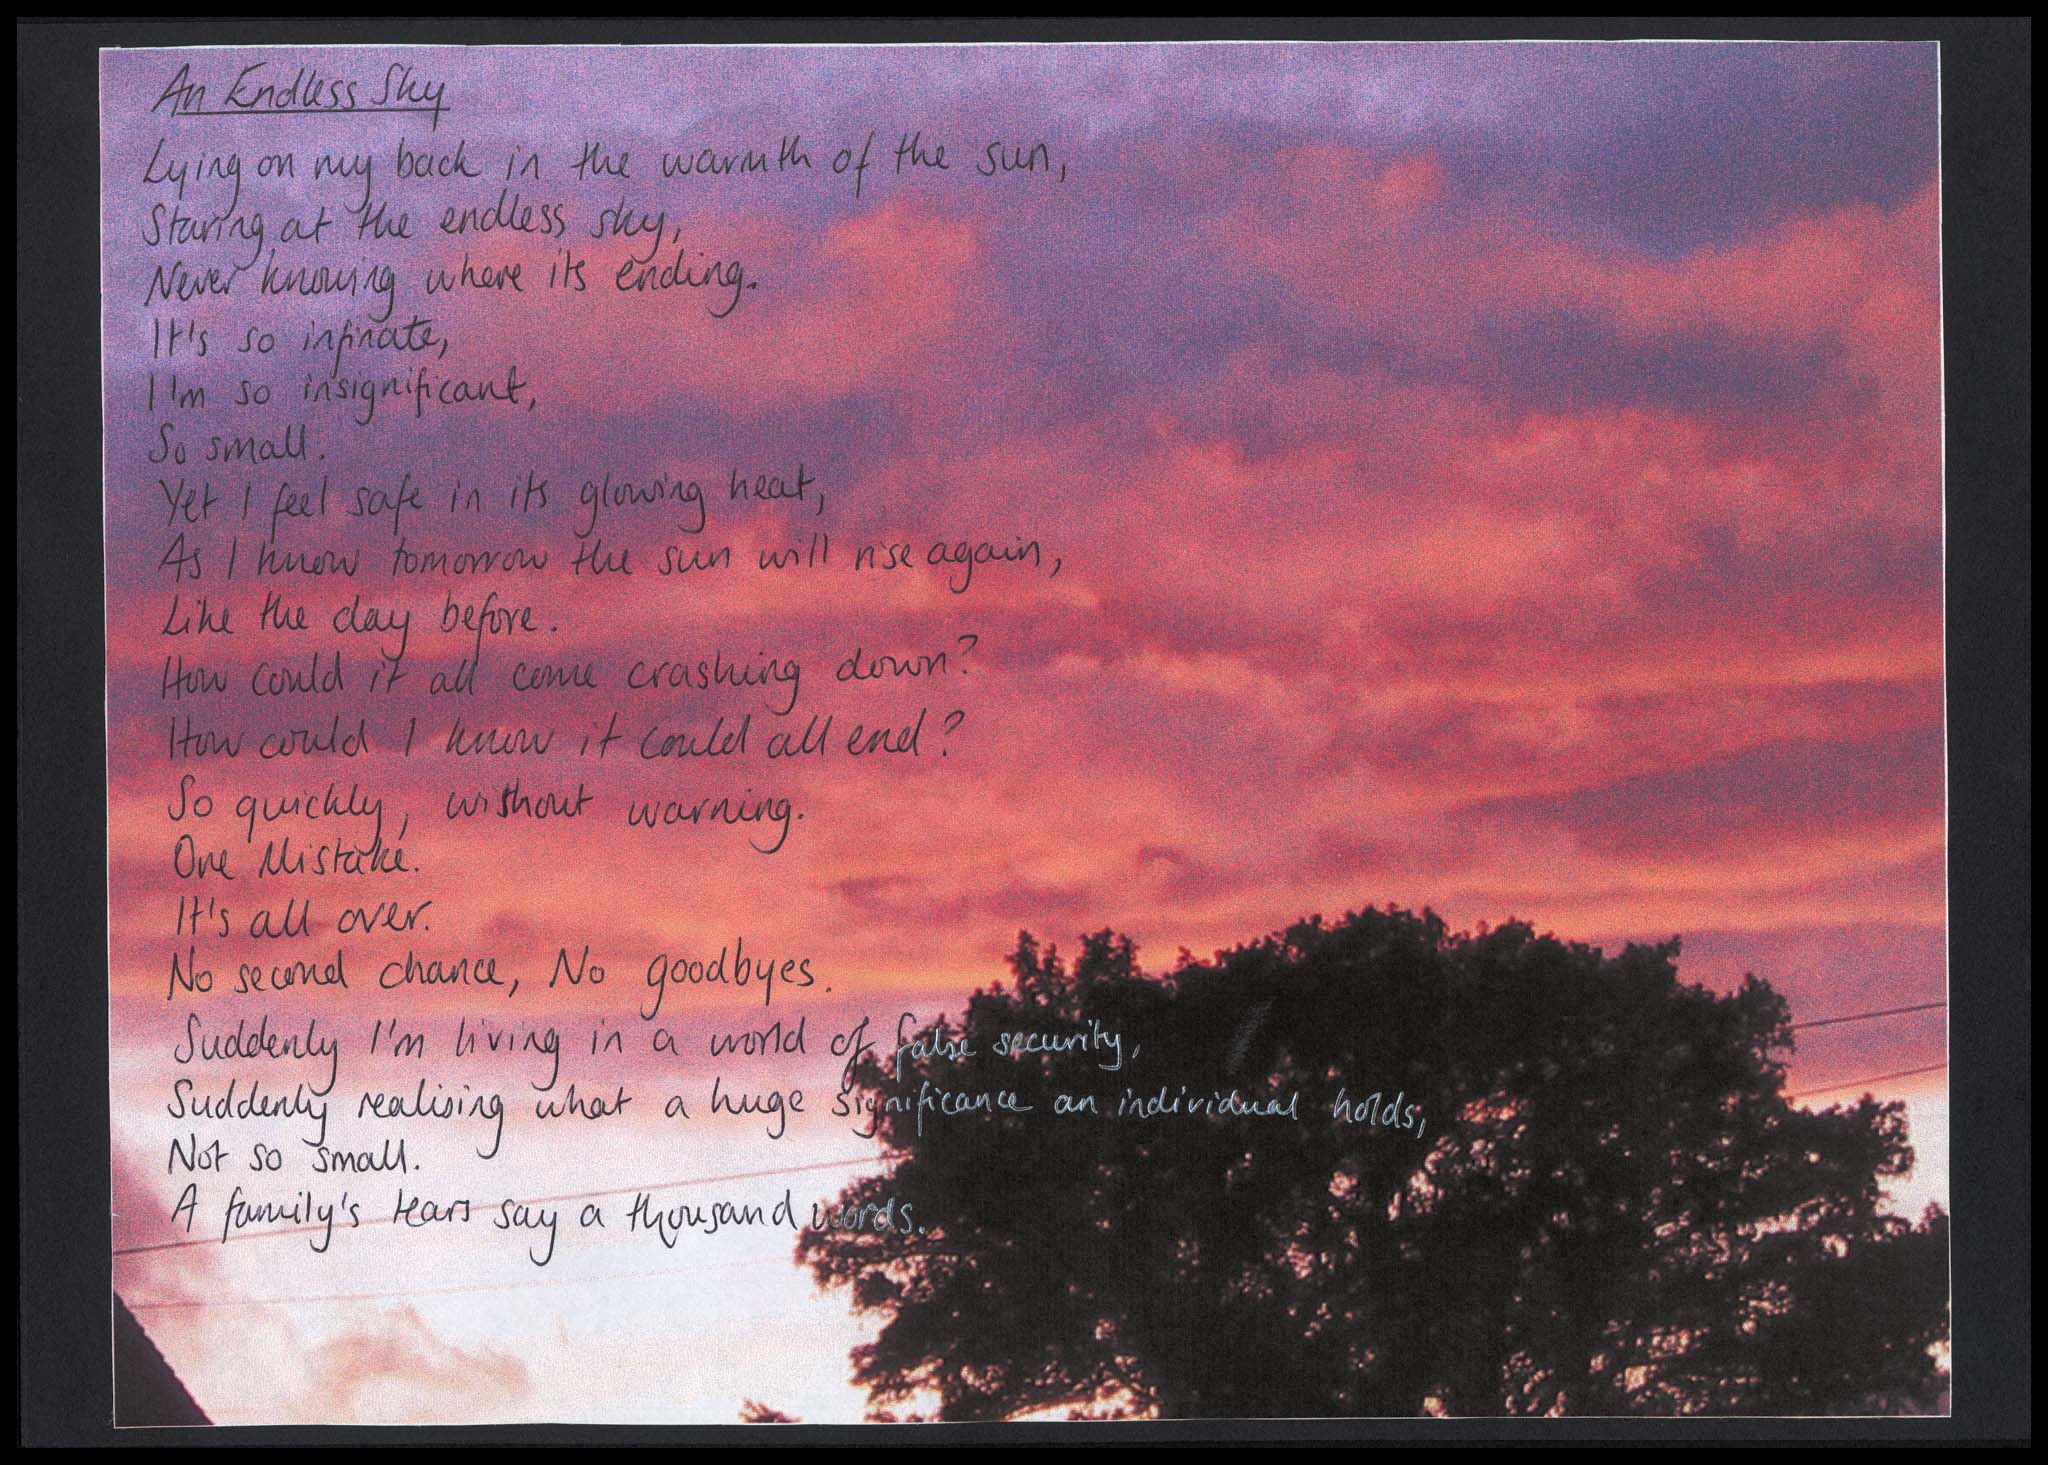 An Endless Sky
Lying on my back in the warmth of the sun,
Staring at the endless sky,
Never knowing where its ending.
It's so infinate,
I'm so insignificant,
So small.
Yet I feel safe in its glowing heat,
As I know tomorrow the sun will rise again,
Like the day before.
How could it all come crashing down?
How could I know it could all end?
So quickly, without warning.
One Mistake.
It's all over.
No second chance, No goodbyes.
Suddenly I'm living in a world of false security,
Suddenly realising what a huge significance an individual holds,
Not so small.
A family's tears say a thousand words.